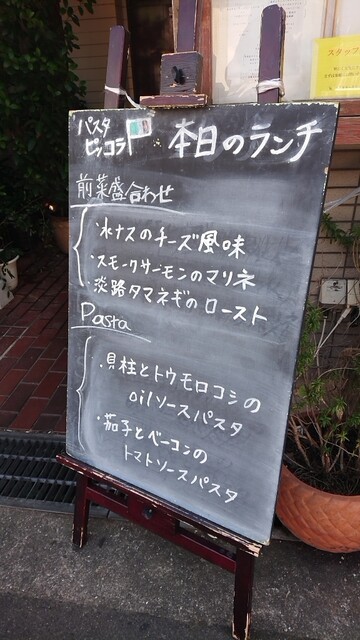 パスタ
ピッコラ
本日のランチ
前菜盛合わせ
・水ナスのチーズ風味
・スモークサーモンのマリネ
・淡路タマネギのロースト
Pasta
・貝柱とトウモロコシの
oilソースパスタ
・茄子とベーコンの
トマトソースパスタ
スタッフ